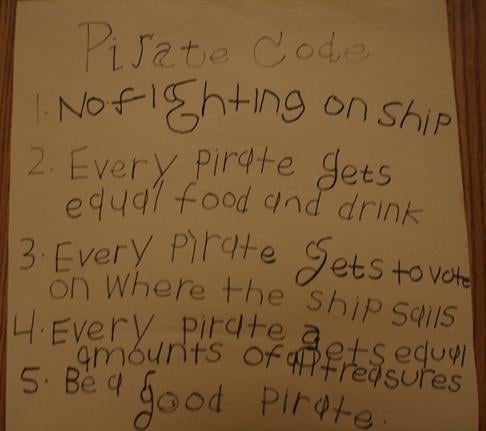 Pirate Code
1. No fighting on ship
2. Every pirate gets
equal food and drink
3. Every pirate gets to vote
on where the ship sails
4. Every pirate gets equal
amounts of all treasures
5. Be a good pirate.